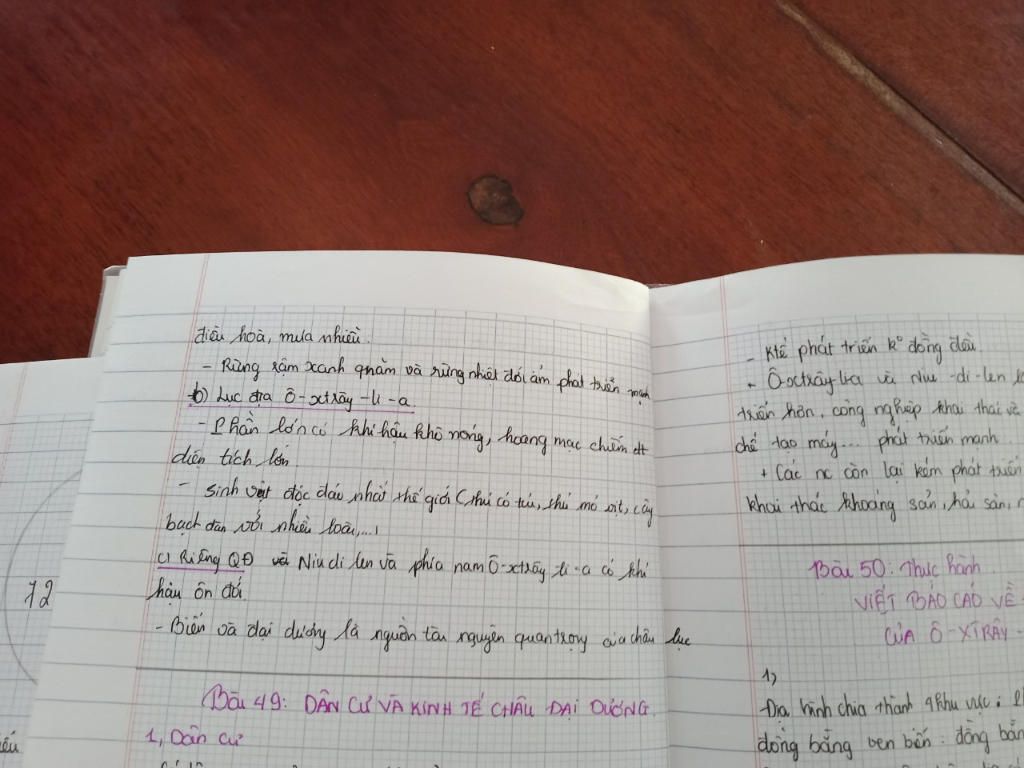 điều hoà, mưa nhiều.
- Rừng rậm xanh quanh và rừng nhiệt đới ẩm phát triển mạnh
b) Lục địa Ô-xtrây-li-a
- Phần lớn có khí hậu khô nóng, hoang mạc chiếm dt
diện tích lớn.
- sinh vật độc đáo nhất thế giới (thú có túi, thú mỏ vịt, cây
bạch đàn với nhiều loài,...)
c) Riêng QĐ và Niu di len và phía nam Ô-xtrây-li-a có khí
hậu ôn đới
- Biển và đại dương là nguồn tài nguyên quan trọng của châu lục
Bài 49: DÂN CƯ VÀ KINH TẾ CHÂU ĐẠI DƯƠNG
1, Dân cư
72
- Ktế phát triển k° đồng đều.
+ Ô-xtrây-li-a và Niu-di-len
triển hơn, công nghiệp khai thác
chế tạo máy... phát triển mạnh
+ Các nc còn lại kém phát triển
khai thác khoáng sản, hải sản,
Bài 50: Thực hành
VIẾT BÁO CÁO VỀ
CỦA Ô-XTRÂY-
1,
Địa hình chia thành 4 khu vực:
đồng bằng ven biển: đồng bằng